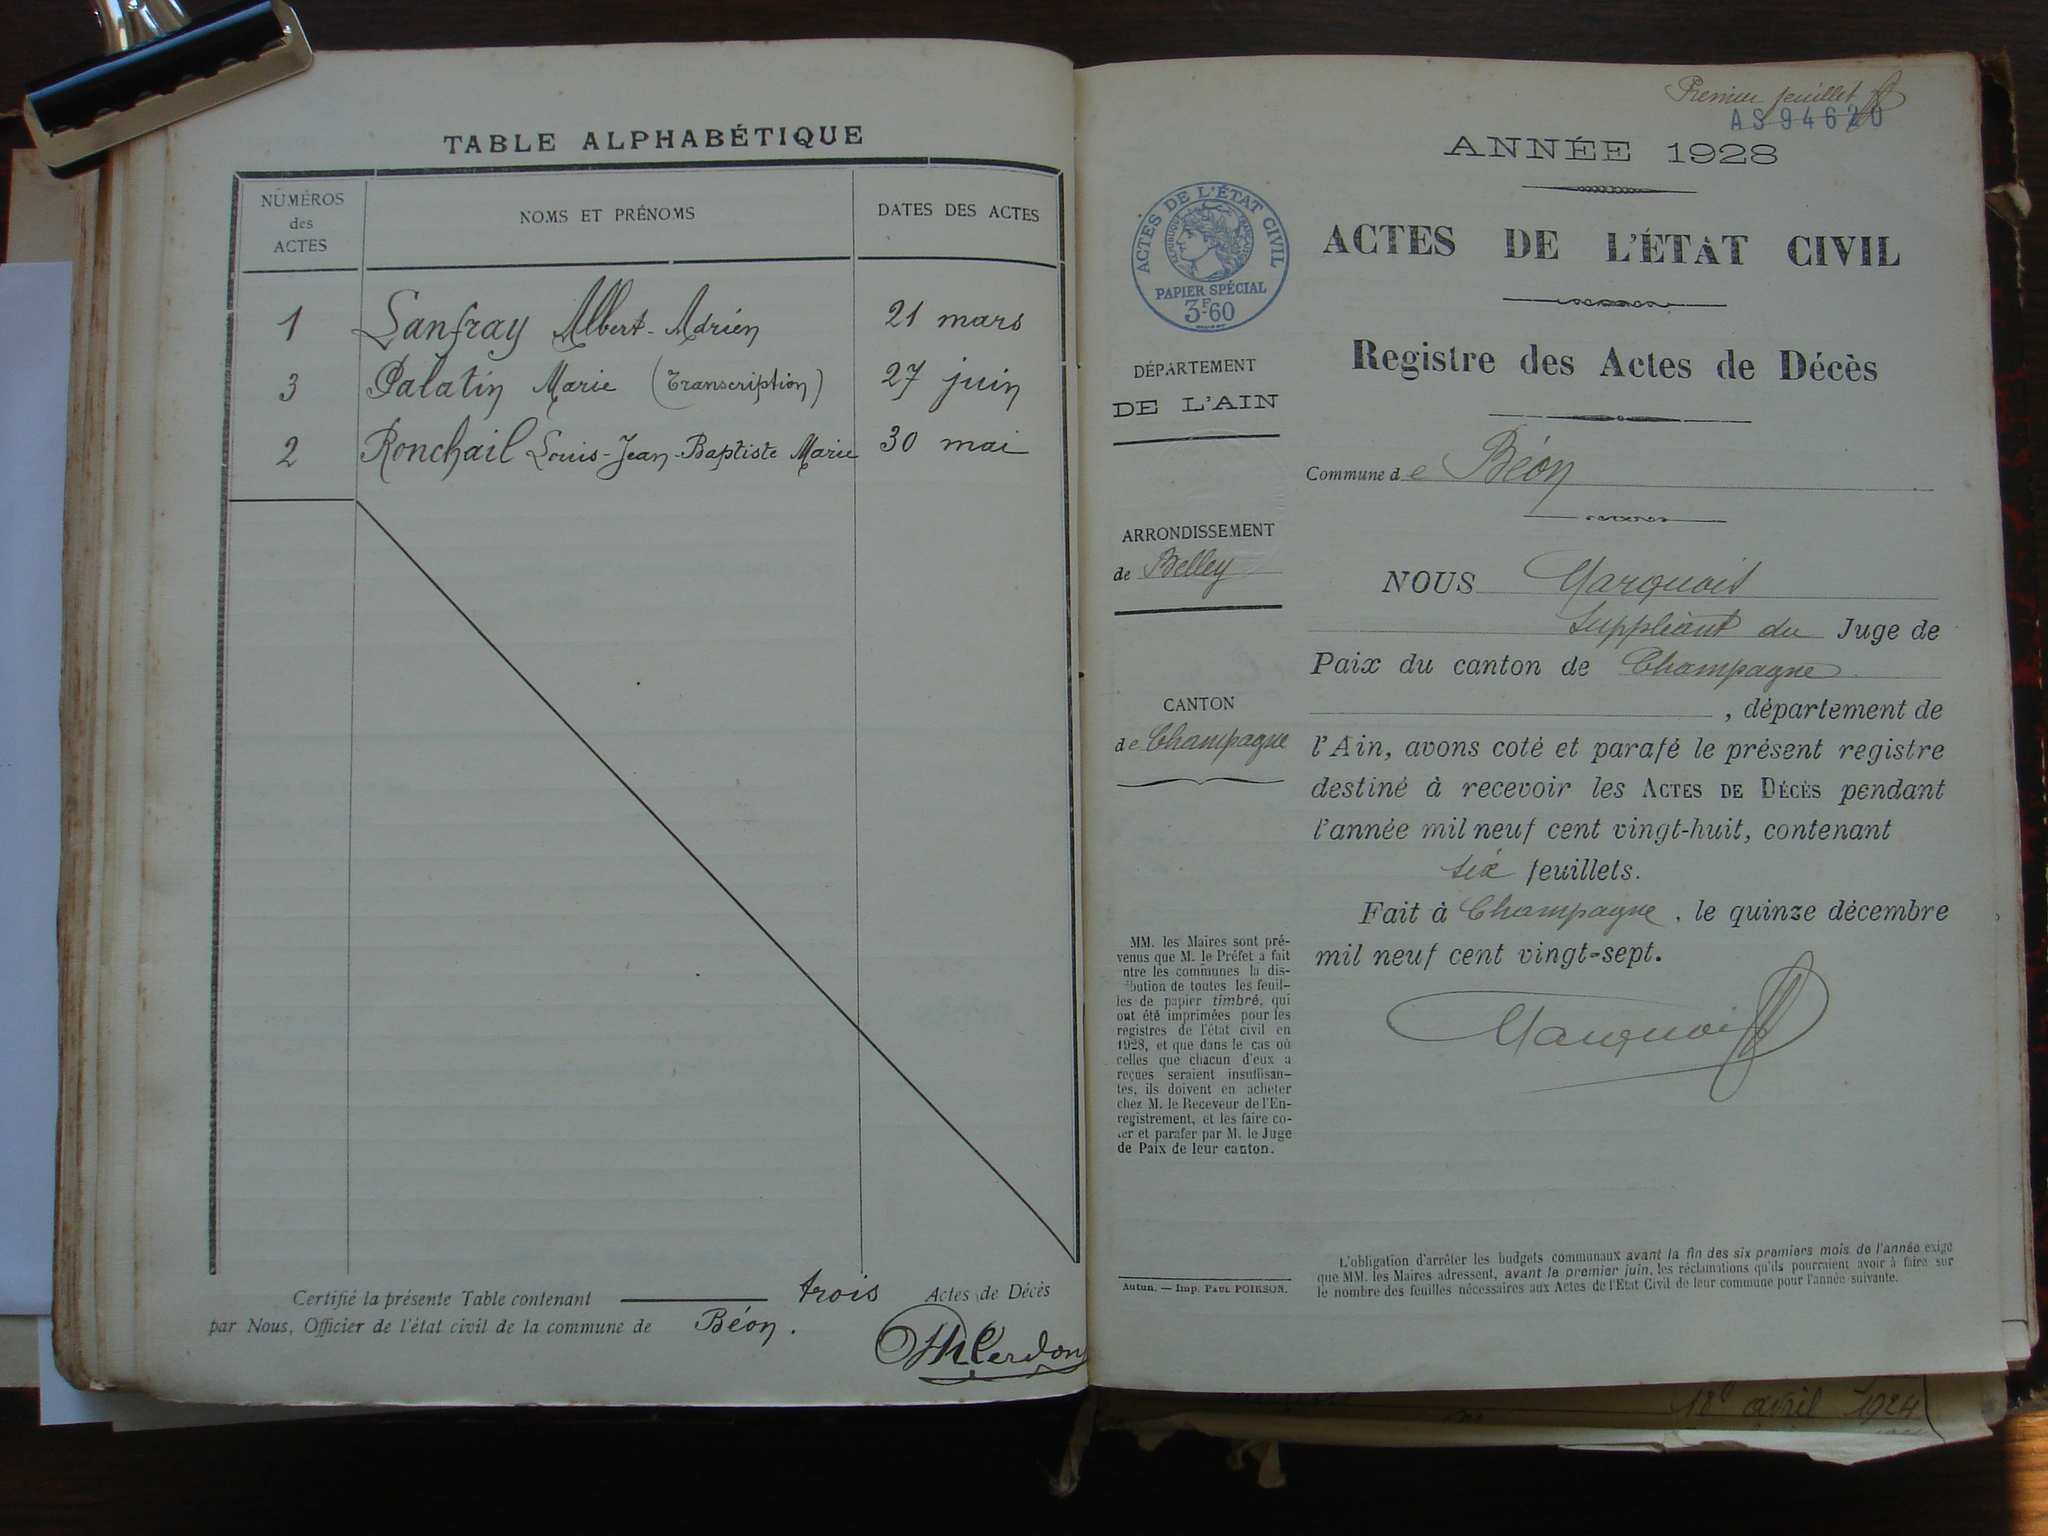 TABLE ALPHABÉTIQUE
NUMÉROS
des
ACTES
NOMS ET PRÉNOMS
DATES DES ACTES
1 Lanfray Albert-Adrien 21 mars
3 Palatin Marie (Transcription) 27 juin
2 Ronchail Louis-Jean-Baptiste Marie 30 mai
Certifié la présente Table contenant trois Actes de Décès
par Nous, Officier de l'état civil de la commune de Béon.
Premier feuillet
AS94620
ANNÉE 1928
ACTES DE L'ÉTAT CIVIL
PAPIER SPÉCIAL
3F60
ACTES DE L'ÉTAT CIVIL
Registre des Actes de Décès
DÉPARTEMENT
DE L'AIN
Commune de Béon
ARRONDISSEMENT
de Belley
NOUS Marquois
Suppléant du Juge de
Paix du canton de Champagne
, département de
CANTON
de Champagne
l'Ain, avons coté et parafé le présent registre
destiné à recevoir les ACTES DE DÉCÈS pendant
l'année mil neuf cent vingt-huit, contenant
six feuillets.
Fait à Champagne, le quinze décembre
mil neuf cent vingt-sept.
Marquois
MM. les Maires sont pré-
venus que M. le Préfet a fait
ntre les communes la dis-
bution de toutes les feuil-
les de papier timbré, qui
ont été imprimées pour les
registres de l'état civil en
1928, et que dans le cas où
celles que chacun d'eux a
reçues seraient insuffisan-
tes, ils doivent en acheter
chez M. le Receveur de l'En-
registrement, et les faire co-
ter et parafer par M. le Juge
de Paix de leur canton.
Autun. — Imp. PAUL POIRSON.
L'obligation d'arrêter les budgets communaux avant la fin des six premiers mois de l'année exige
que MM. les Maires adressent, avant le premier juin, les réclamations qu'ils pourraient avoir à faire sur
le nombre des feuilles nécessaires aux Actes de l'Etat Civil de leur commune pour l'année suivante.
18 avril 1924